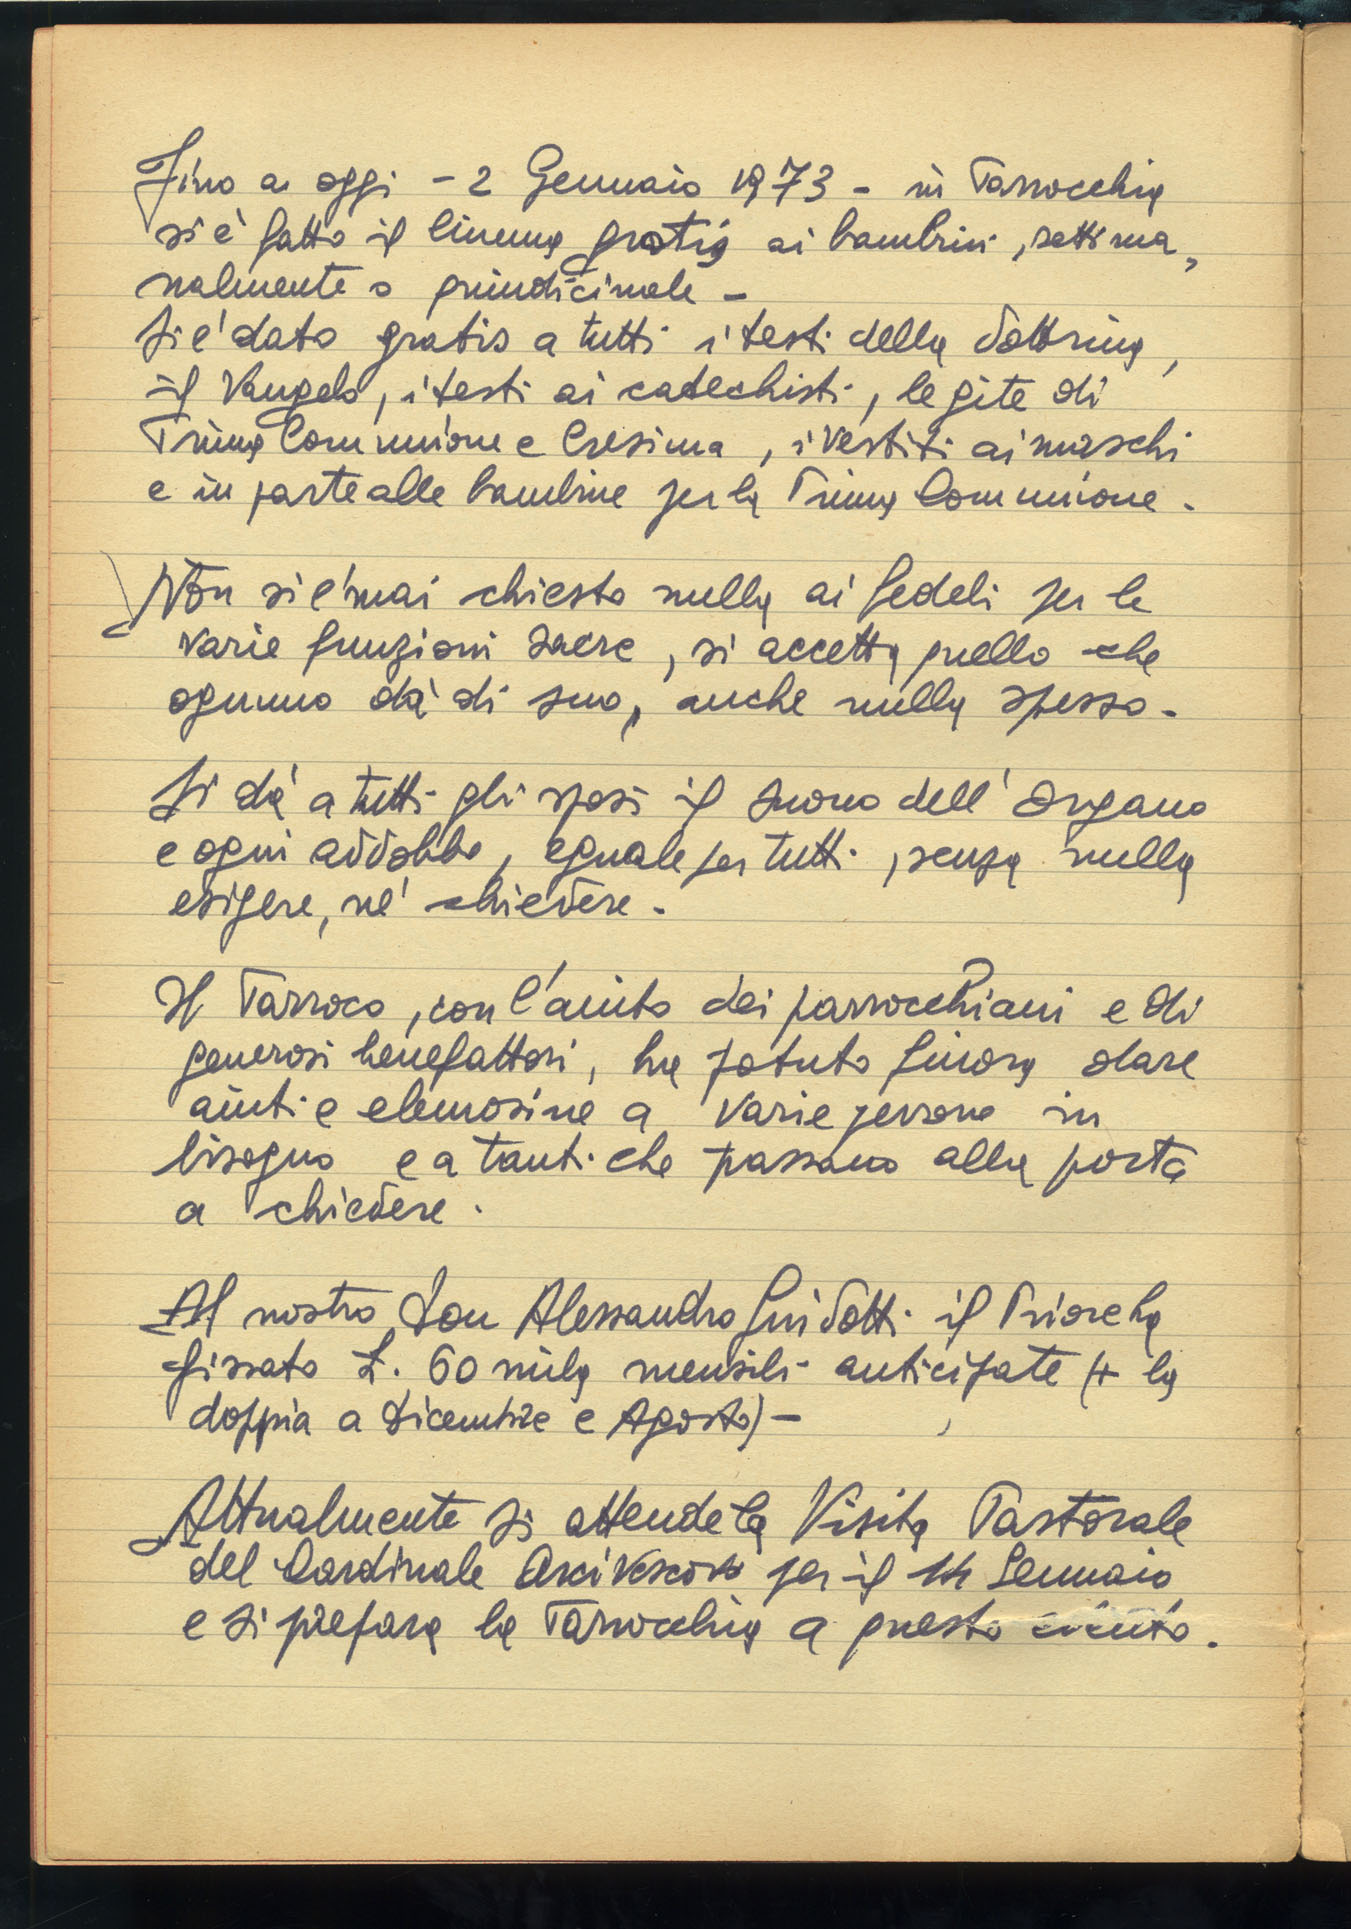 Fino a oggi - 2 Gennaio 1973 - in Parrocchia
si è fatto il Cinema gratis ai bambini, settima,
nalmente o quindicinale -
Si é dato gratis a tutti i testi della Dottrina,
il Vangelo, i testi ai catechisti, le gite di
Prima Comunione e Cresima, i vestiti ai maschi
e in parte alle bambine per la Prima Comunione.
Non si é mai chiesto nulla ai fedeli per le
varie funzioni sacre, si accetta quello che
ognuno dà di suo, anche nulla spesso.
Si dà a tutti gli sposi il suono dell'organo
e ogni addobbo, eguale per tutti, senza nulla
esigere, né chiedere.
Il Parroco, con l'aiuto dei parrocchiani e di
generosi benefattori, ha potuto finora dare
aiuti e elemosine a varie persone in
bisogno e a tanti che passano alla porta
a chiedere.
Al nostro Don Alessandro Guidotti il Priore ha
fissato L. 60 mila mensili anticipate (+ la
doppia a Dicembre e Agosto) -
Attualmente si attende la Visita Pastorale
del Cardinale Arcivescovo per il 14 Gennaio
e si prepara la Parrocchia a questo evento.